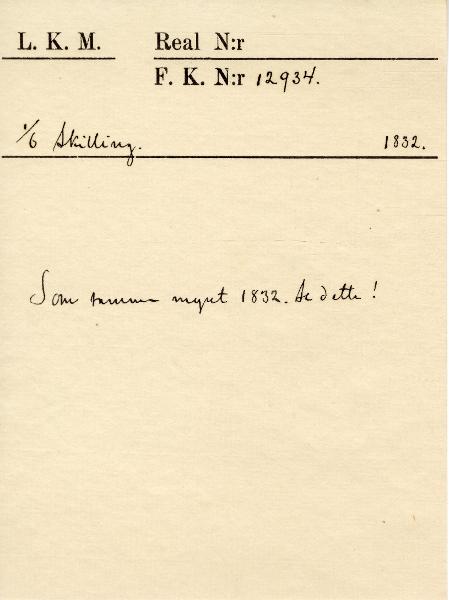 L. K. M. Real N:r
F. K. N:r 12934.
1/6 Skilling. 1832.
Som samma mynt 1832. Se detta!